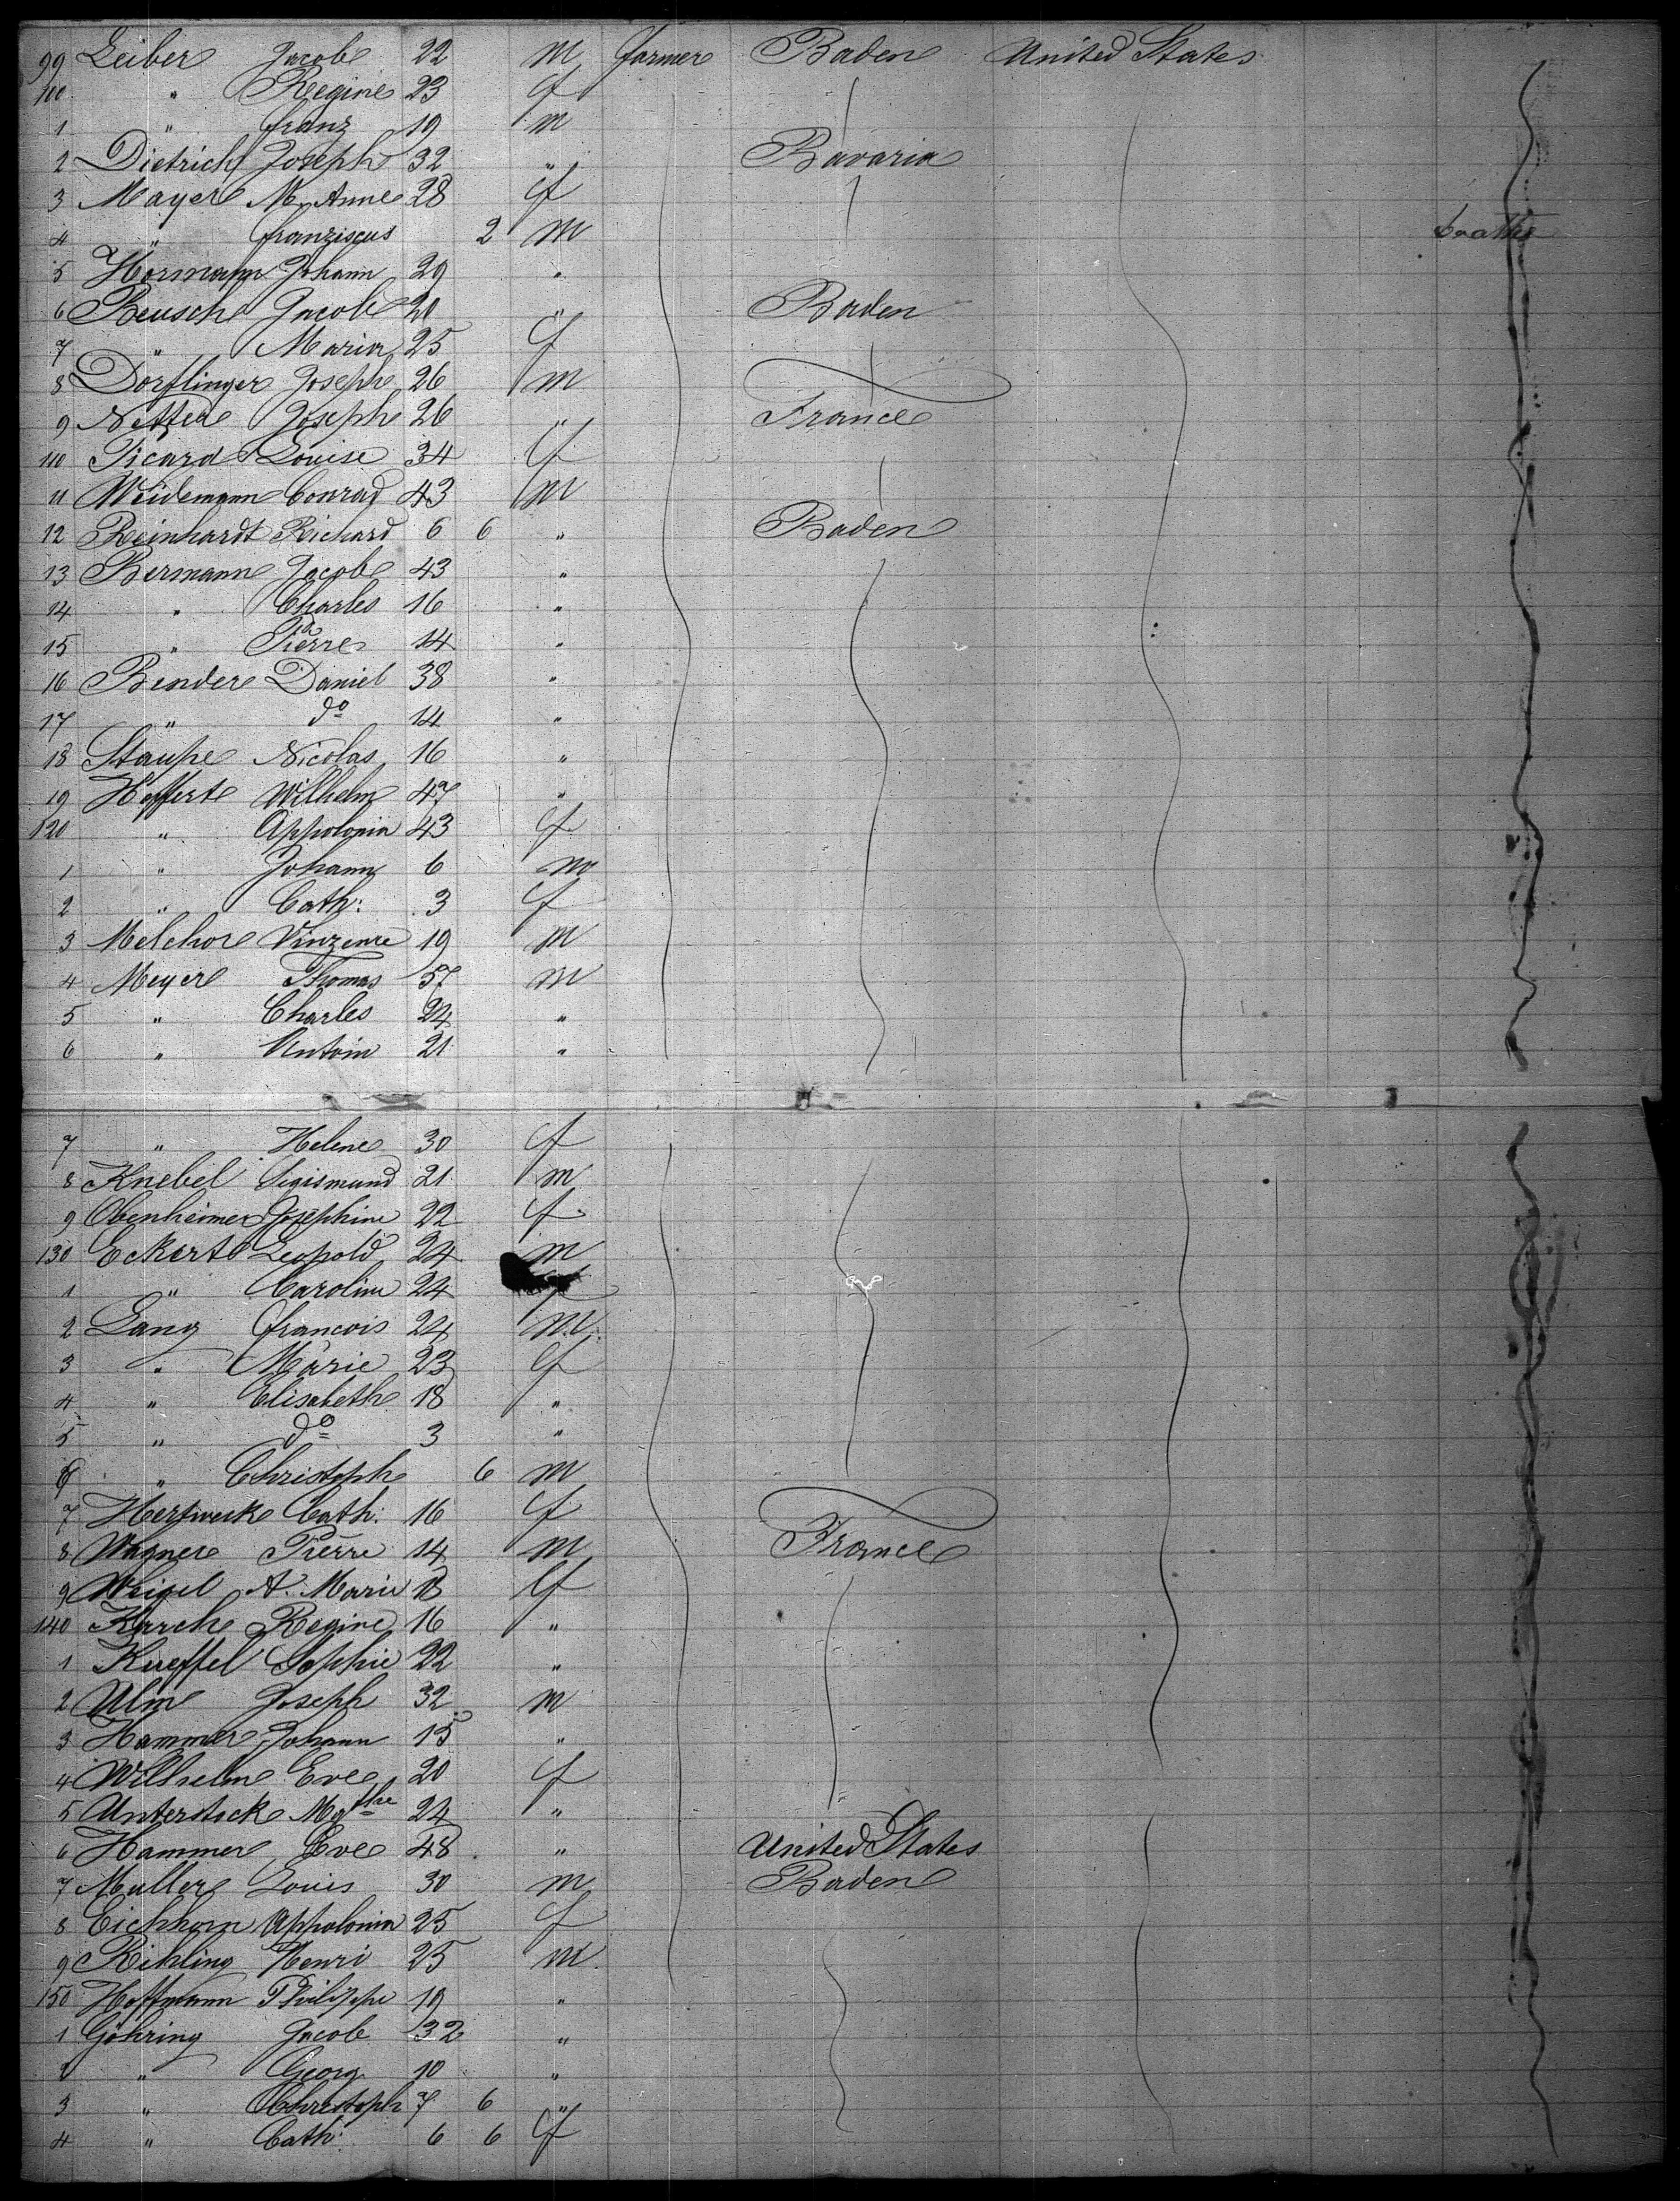 99 Leiber Jacob 22 m farmer Baden United States
100 " Regine 23 f
1 " franz 19 m
2 Dietrich Joseph 32 " Bavaria
3 Mayer M. Anne 28 f
4 " franziscus 2 m
5 Hormann Johann 29 "
6 Reusch Jacob 20 " Baden
7 " Maria 25 f
8 Dorflinger Joseph 26 m
9 Netter Joseph 26 " France
110 Picard Louise 34 f
11 Weidemann Conrad 43 m
12 Reinhardt Richard 6 6 " Baden
13 Bermann Jacob 43 "
14 " Charles 16 "
15 " Pierre 14 "
16 Binder Daniel 38 "
17 " do 14 "
18 Staupe Nicolas 16 "
19 Heffert Wilhelm 47 "
120 " Appolonia 43 f
1 " Johann 6 m
2 " Cath: 3 f
3 Melchor Vinzenre 19 m
4 Meyer Thomas 57 m
5 " Charles 24 "
6 " Antoin 21 "
7 " Helene 30 f
8 Knebel Sigismund 21 m
9 Obenheimer Josephine 22 f
130 Eckert Leopold 24 m
1 " Caroline 24 f
2 Lang francois 24 m
3 " Marie 23 f
4 " Elisabeth 18 "
5 " do 3 "
6 " Christoph 6 m
7 Hertweck Cath: 16 f
8 Wagner Pierre 14 m France
9 Weigel A. Marie 18 f
140 Karch Regine 16 "
1 Kueffel Sophie 22 "
2 Ulm Joseph 32 m
3 Hammer Johann 15 "
4 Wilhelm Eve 20 f
5 Unterstock 24 "
6 Hammer Eve 48 " United States
7 Muller Louis 30 m Baden
8 Eichhorn Appolonia 25 f
9 Rihling Henri 25 m
150 Hoffmann Philippe 19 "
1 Göhring Jacob 32 "
2 " Georg 10 "
3 " Christoph 7 6 "
4 " Cath: 6 6 f